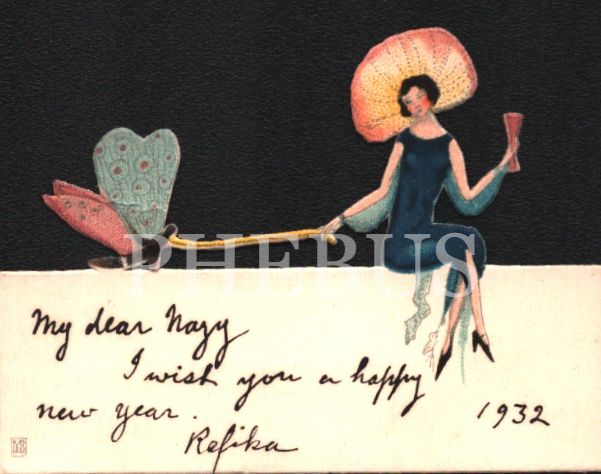 PHEBUS
My dear Nazy
I wish you a happy
new year.
Refika
1932